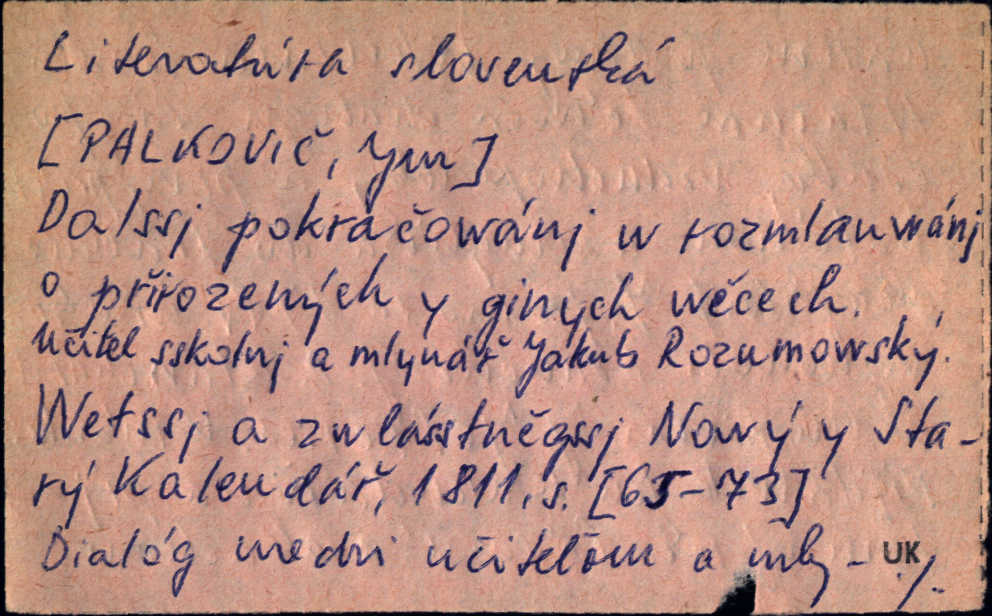 Literatúra slovenská
[PALKOVIČ, Jur]
Dalssj pokračowánj w rozmlauwánj
o přirozených y giných wěcech.
Učitel sskolnj a mlynář Jakub Rozumowský.
Wetssj a zwlásstněgssj Nowý y Sta-
rý Kalendář, 1811, s. [65-73]
Dialóg medzi učiteľom a mly- ./.
UK